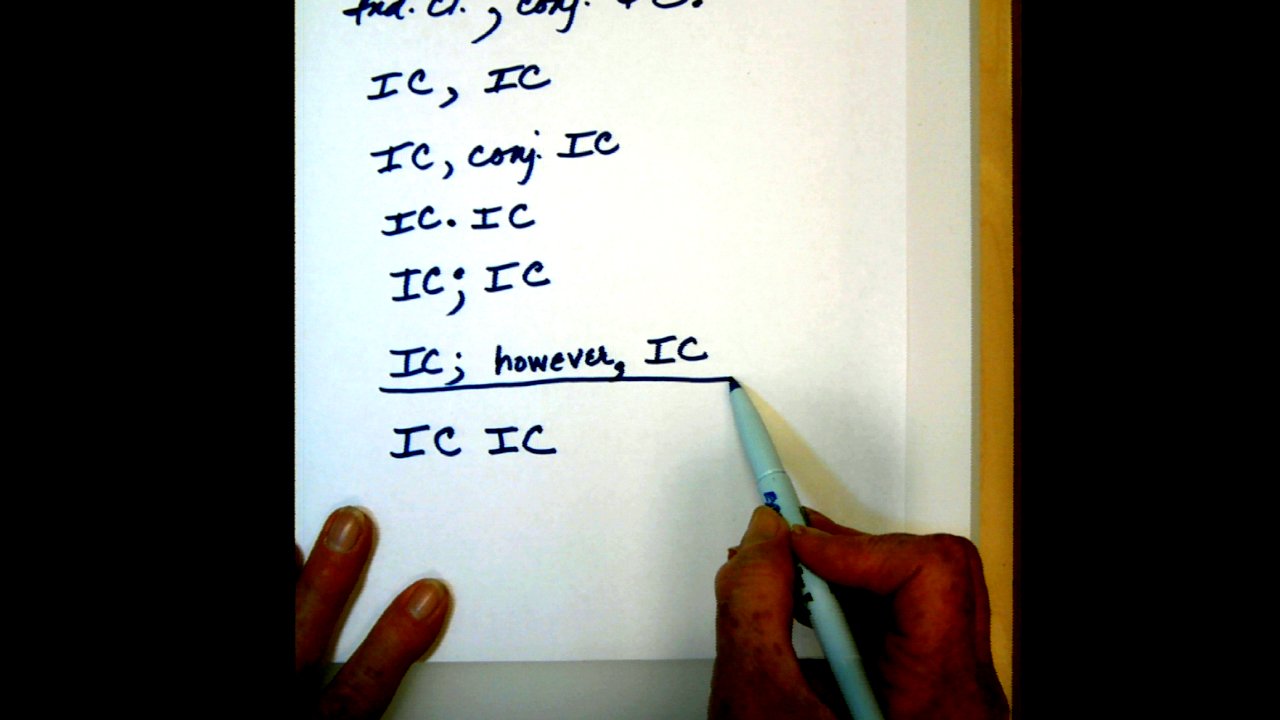 Ind. cl., conj. + C.
IC, IC
IC, conj. IC
IC. IC
IC; IC
IC; however, IC
IC IC